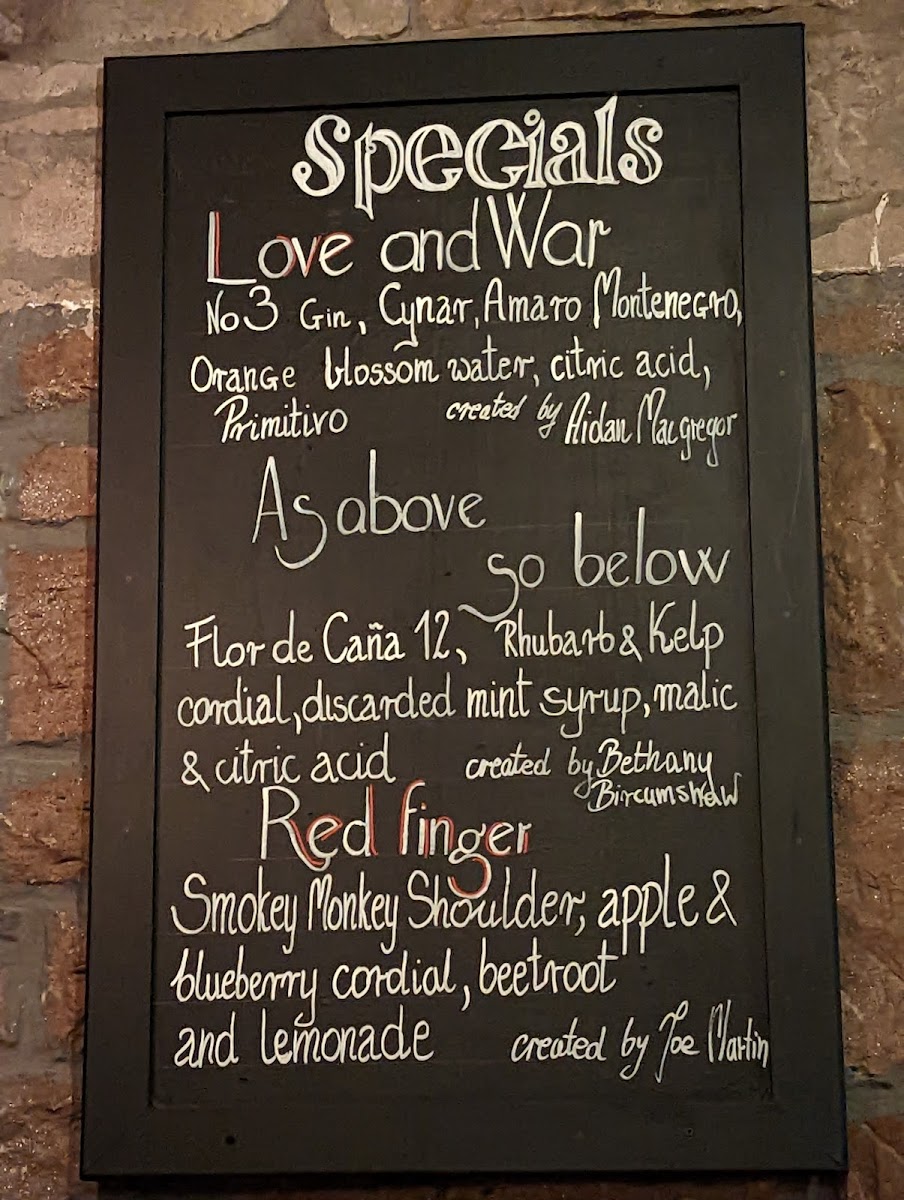 Specials
Love and War
No3 Gin, Cynar, Amaro Montenegro,
Orange blossom water, citric acid,
Primitivo created by Aidan Macgregor
As above
so below
Flor de Caña 12, Rhubarb & Kelp
cordial, discarded mint syrup, malic
& citric acid created by Bethany
Bircumshaw
Red finger
Smokey Monkey Shoulder, apple &
blueberry cordial, beetroot
and lemonade created by Joe Martin